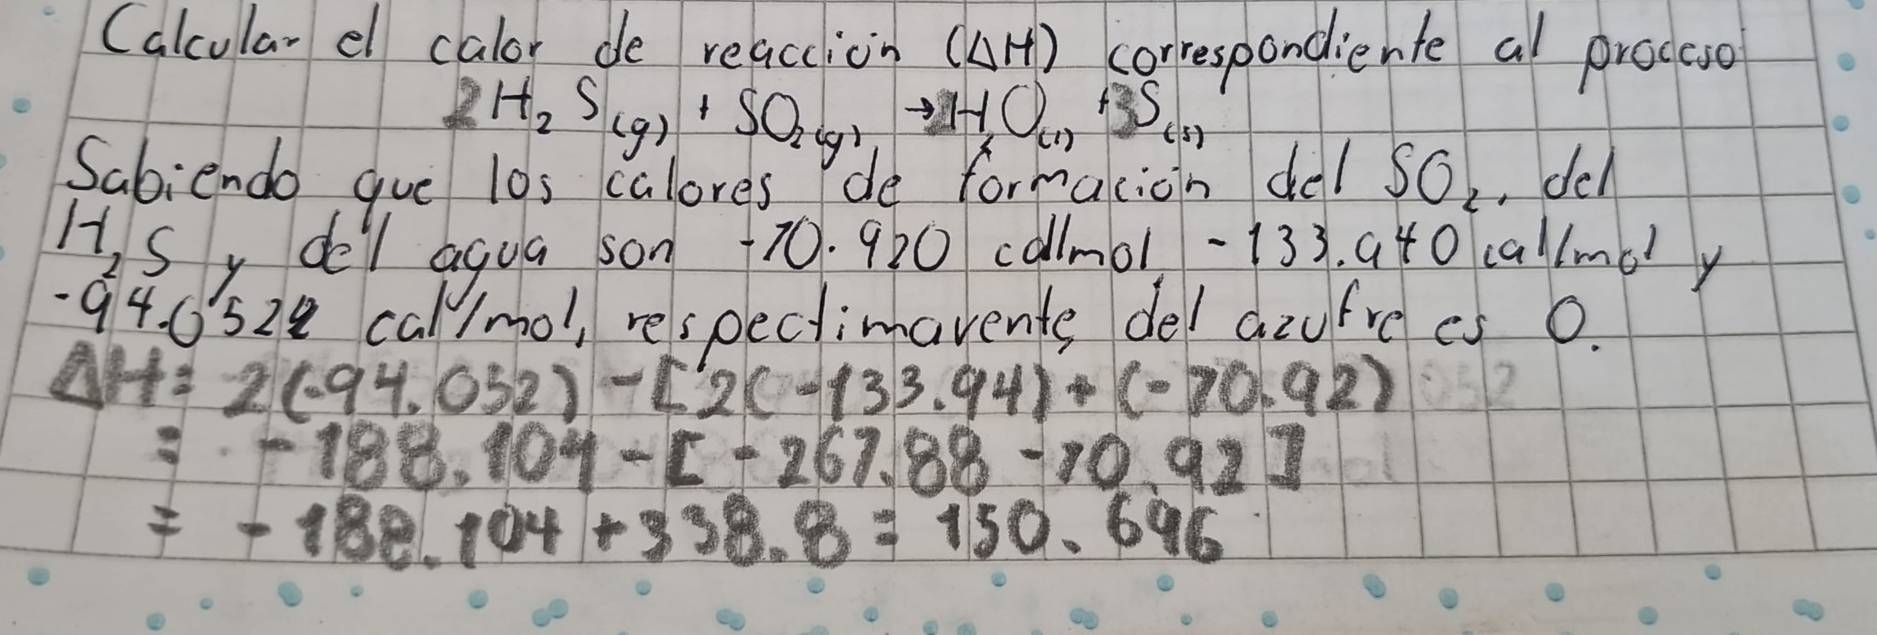 Calcular el calor de reaccioin (ΔH) correspondiente al proceso
2H₂S(g) + SO₂(g) → 2H₂O(l) + 3S(s)
Sabiendo que los calores de formacion del SO₂, del
H₂S y del agua son -70.920 cal/mol -133.940 cal/mol y
-94.0522 cal/mol, respectimavente, del azufre es 0.
ΔH = 2(-94.052) - [2(-133.94) + (-70.92)
= -188.104 - [-267.88 - 70.92]
= -188.104 + 338.8 = 150.696